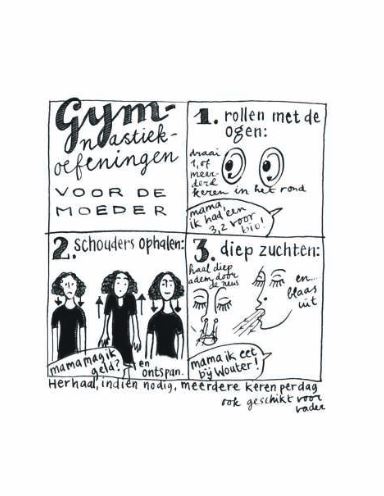 Gym-
nastiek-
oefeningen
VOOR DE
MOEDER
1. rollen met de
ogen:
draai
1, of
meer-
dere
keren in het rond
mama,
ik had een
3,2 voor
bio!
2. schouders ophalen:
mama mag ik
geld?
en
ontspan.
3. diep zuchten:
haal diep
adem door
de neus
en...
blaas
uit
mama ik eet
bij Wouter!
Herhaal, indien nodig, meerdere keren per dag
ook geschikt voor
vader